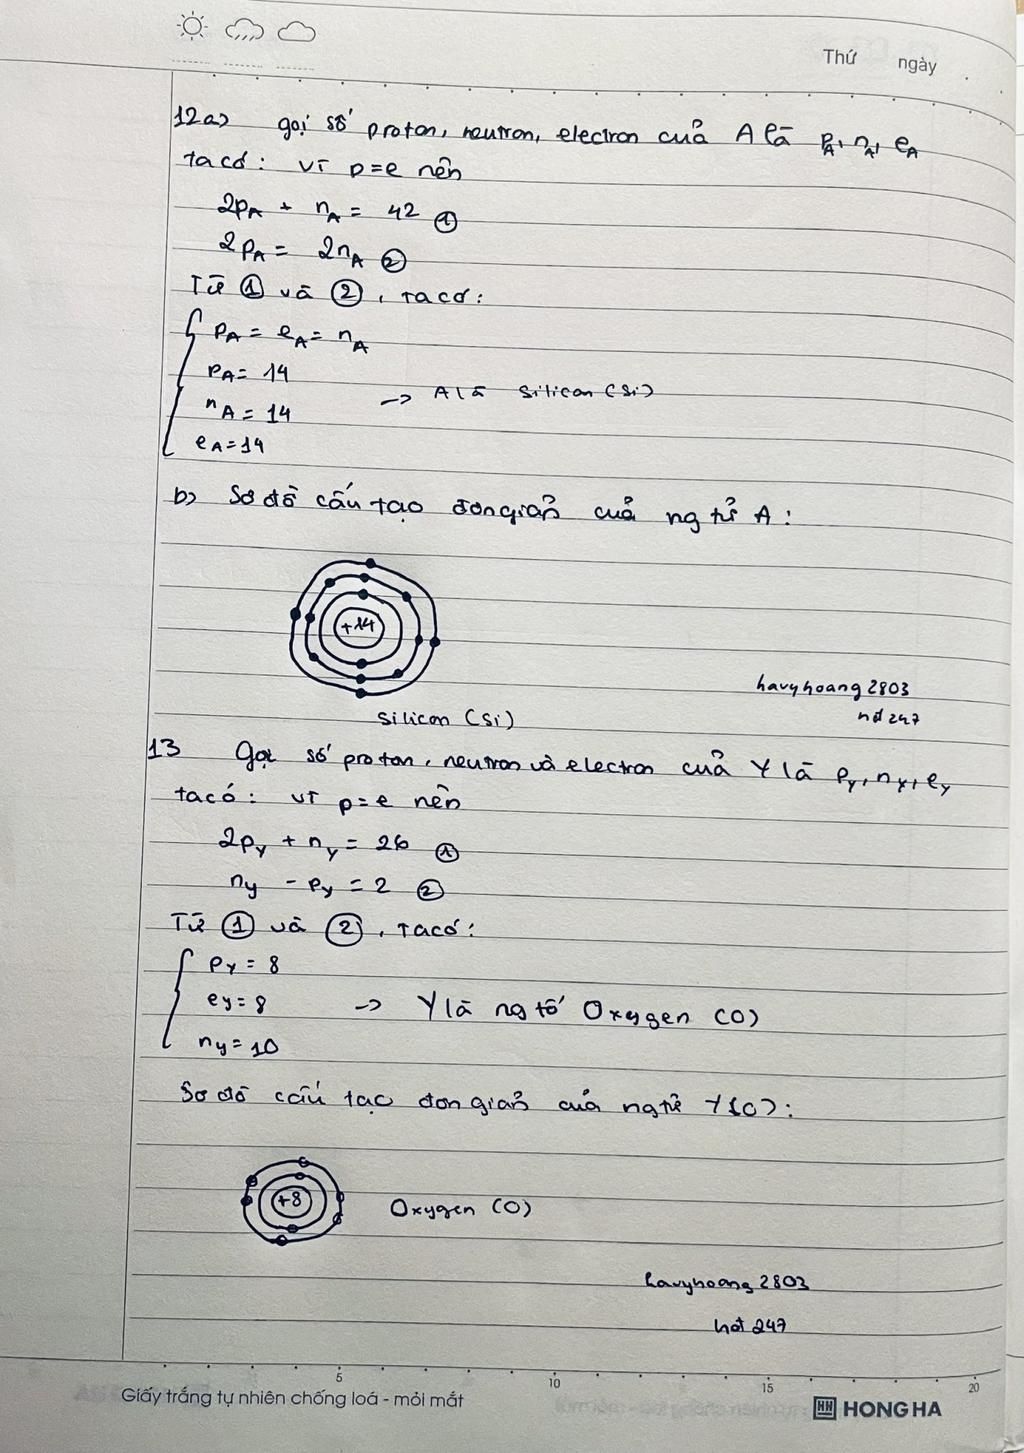 Thứ ngày
12a) gọi số proton, neutron, electron của A là pA, nA, eA
ta có: vì p=e nên
2pA + nA = 42 ①
2pA = 2nA ②
Từ ① và ②, ta có:
pA = eA = nA
pA = 14
→ A là silicon (Si)
nA = 14
eA = 14
b) Sơ đồ cấu tạo đơn giản của ng tử A:
+14
havyhoang2803
hđ 247
silicon (Si)
13 Gọi số proton, neutron và electron của Y là pY, nY, eY
ta có: vì p=e nên
2pY + nY = 26 ①
nY - pY = 2 ②
Từ ① và ②, ta có:
pY = 8
eY = 8 → Y là ng tố Oxygen (O)
nY = 10
Sơ đồ cấu tạo đơn giản của ng tử Y(O):
+8 Oxygen (O)
havyhoang2803
hđ 247
5 10 15 20
Giấy trắng tự nhiên chống loá - mỏi mắt
HH HONG HA